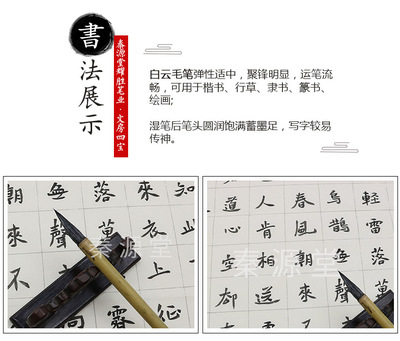 書法展示
秦源堂耀胜笔业·文房四宝
白云毛笔弹性适中，聚锋明显，运笔流
畅，可用于楷书、行草、隶书、篆书、
绘画;
湿笔后笔头圆润饱满蓄墨足，写字较易
传神。
朝無落來知
來聲萬衣此
不上
露征
秦源堂
道人春烏輕
心肯風鵲雷
空相朝無落
却送來聲萬
秦源堂